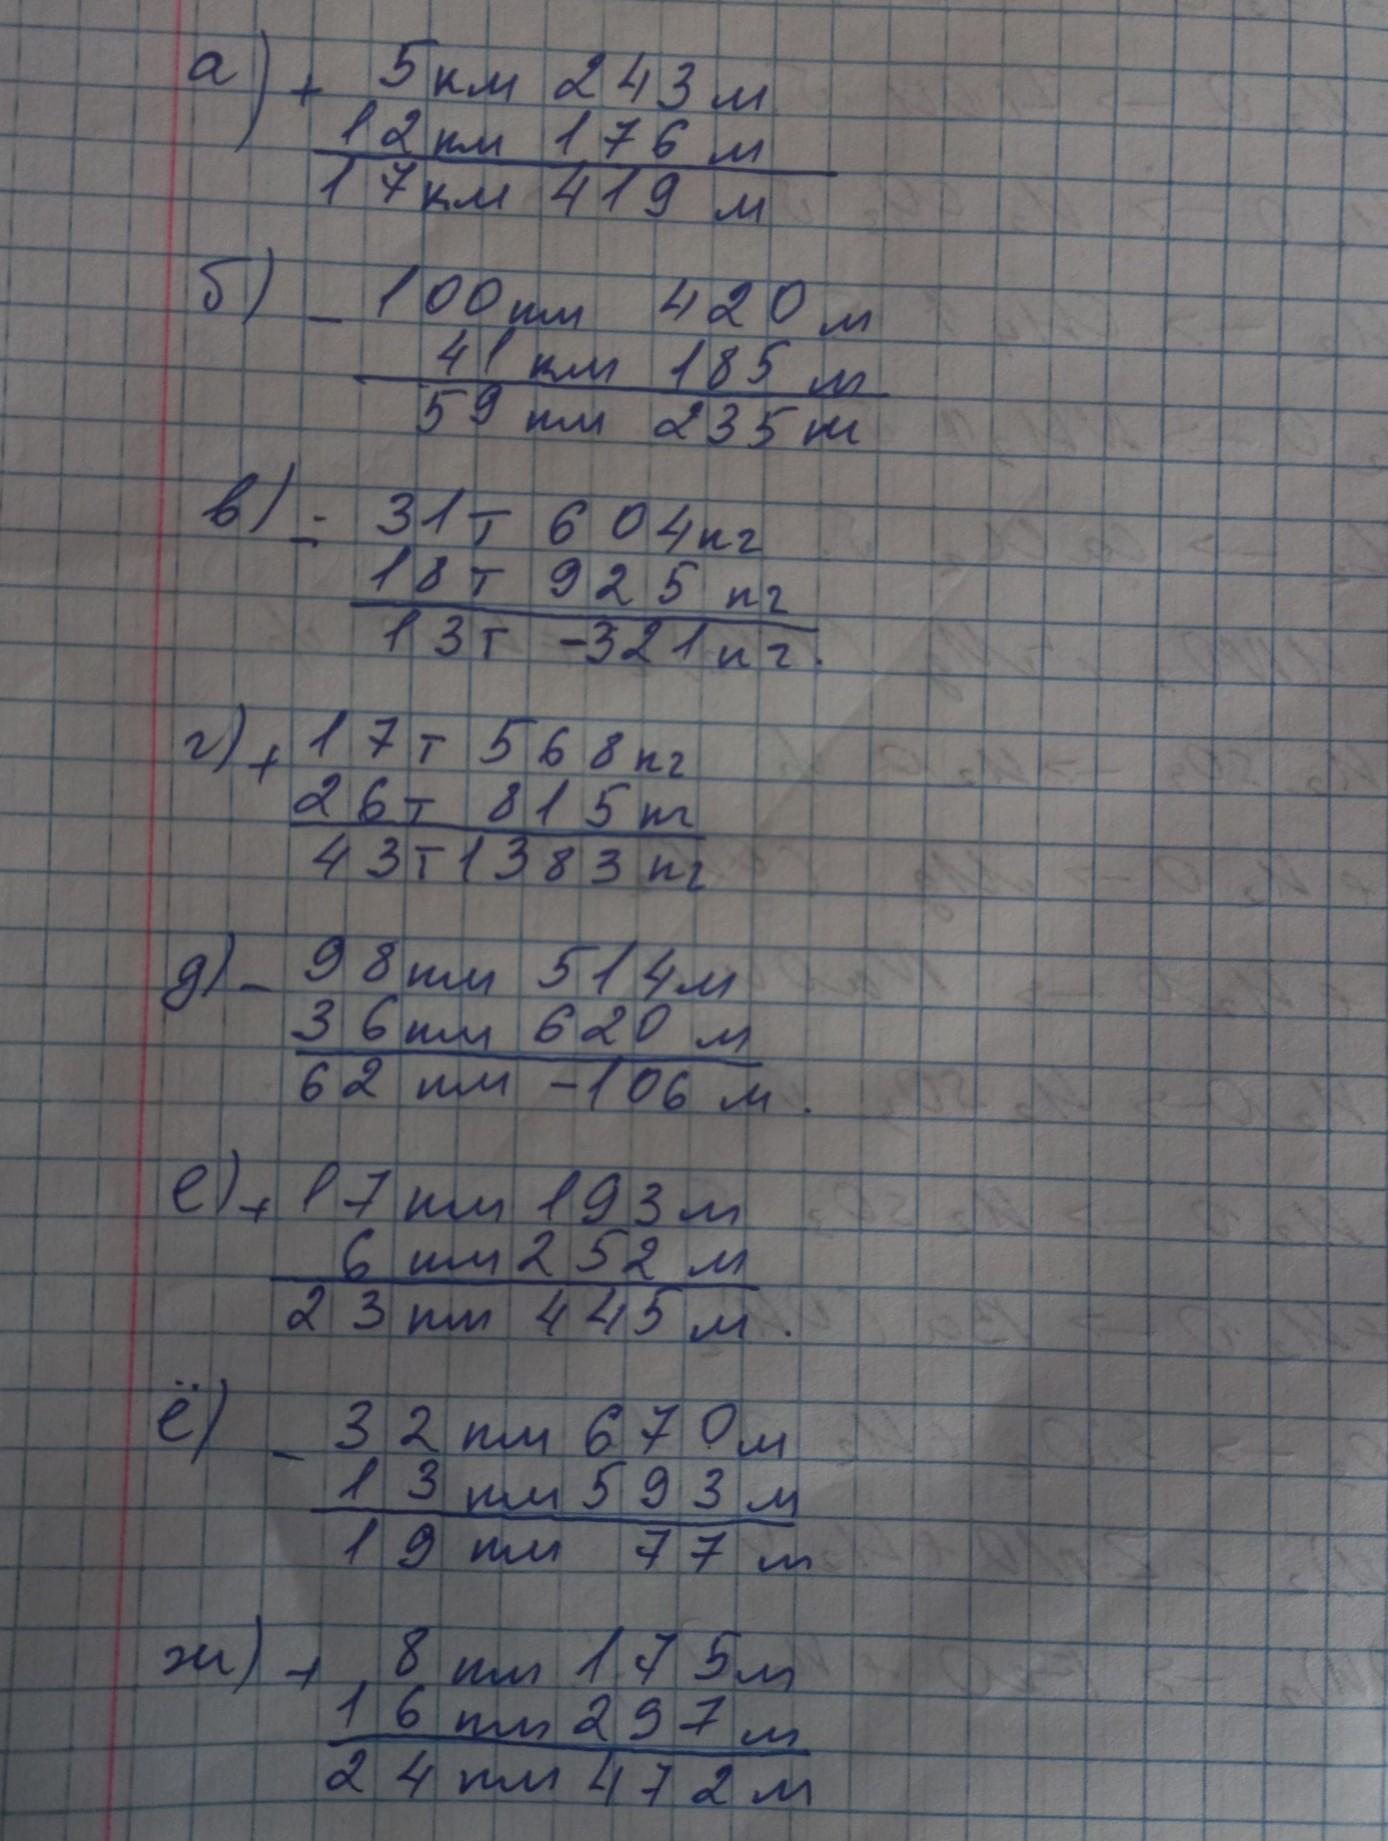 а) + 5 км 243 м
12 км 176 м
17 км 419 м
б) - 100 км 420 м
41 км 185 м
59 км 235 м
в) - 31 т 604 кг
18 т 925 кг
13 т -321 кг.
г) + 17 т 568 кг
26 т 815 кг
43 т 1383 кг
д) - 98 км 514 м
36 км 620 м
62 км -106 м.
е) + 17 км 193 м
6 км 252 м
23 км 445 м.
ё) - 32 км 670 м
13 км 593 м
19 км 77 м
ж) + 8 км 175 м
16 км 297 м
24 км 472 м